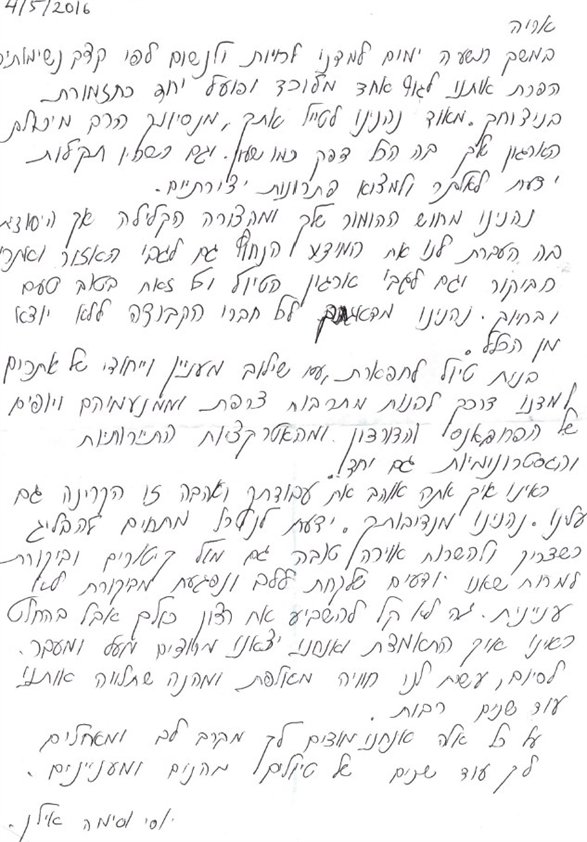 4/5/2016
אריה
במשך תשעה ימים למדנו לחיות ולנשום לפי קצב נשימותיך
הפכת אותנו לגוף אחד מלוכד ופועל יחד כתזמורת
בניצוחך. מאוד נהנינו לטייל אתך, מנסיונך הרב מיכולת
הארגון שלך בה הכל דפק כמו שעון. וגם כשהיו תקלות
ידעת לאלתר ולמצוא פתרונות יצירתיים.
נהנינו מחוש ההומור שלך ומהצורה הקלילה אך היסודית
בה העברת לנו את המידע הנחוץ גם לגבי האזור ואתרי
הביקור וגם לגבי ארגון הטיול וכל זאת בטוב טעם
ובחיוך. נהנינו מדאגתך לכל חברי הקבוצה ללא יוצא
מן הכלל.
בנית טיול לתפארת, עם שילוב מעניין וייחודי של אתרים
למדנו דרכך להנות מתרבות צרפת וממנעמיהם ויופים
של הפרובאנס והדורדון ומהאטרקציות התיירותיות
והגסטרונומיות גם יחד.
ראינו איך אתה אוהב את עבודתך ואהבה זו הקרינה גם
עלינו. נהנינו מנדיבותך. ידעת לנטרל מתחים להבליג
כשצריך ולהשרות אוירה טובה גם מול קיטורים וביקורת
למרות שאנו יודעים שלקחת ללב ונפגעת מביקורת לא
עניינית. זה לא קל להשביע את רצון כולם אבל בהחלט
ראינו איך התאמצת ואנחנו יצאנו מרוצים מעל ומעבר.
לסיום, עשית לנו חוויה מאלפת ומהנה שתלווה אותנו
עוד שנים רבות.
על כל אלה אנחנו מודים לך מקרב לב ומאחלים
לך עוד שנים של טיולים מהנים ומעניינים.
יוסי וסימה אילן.